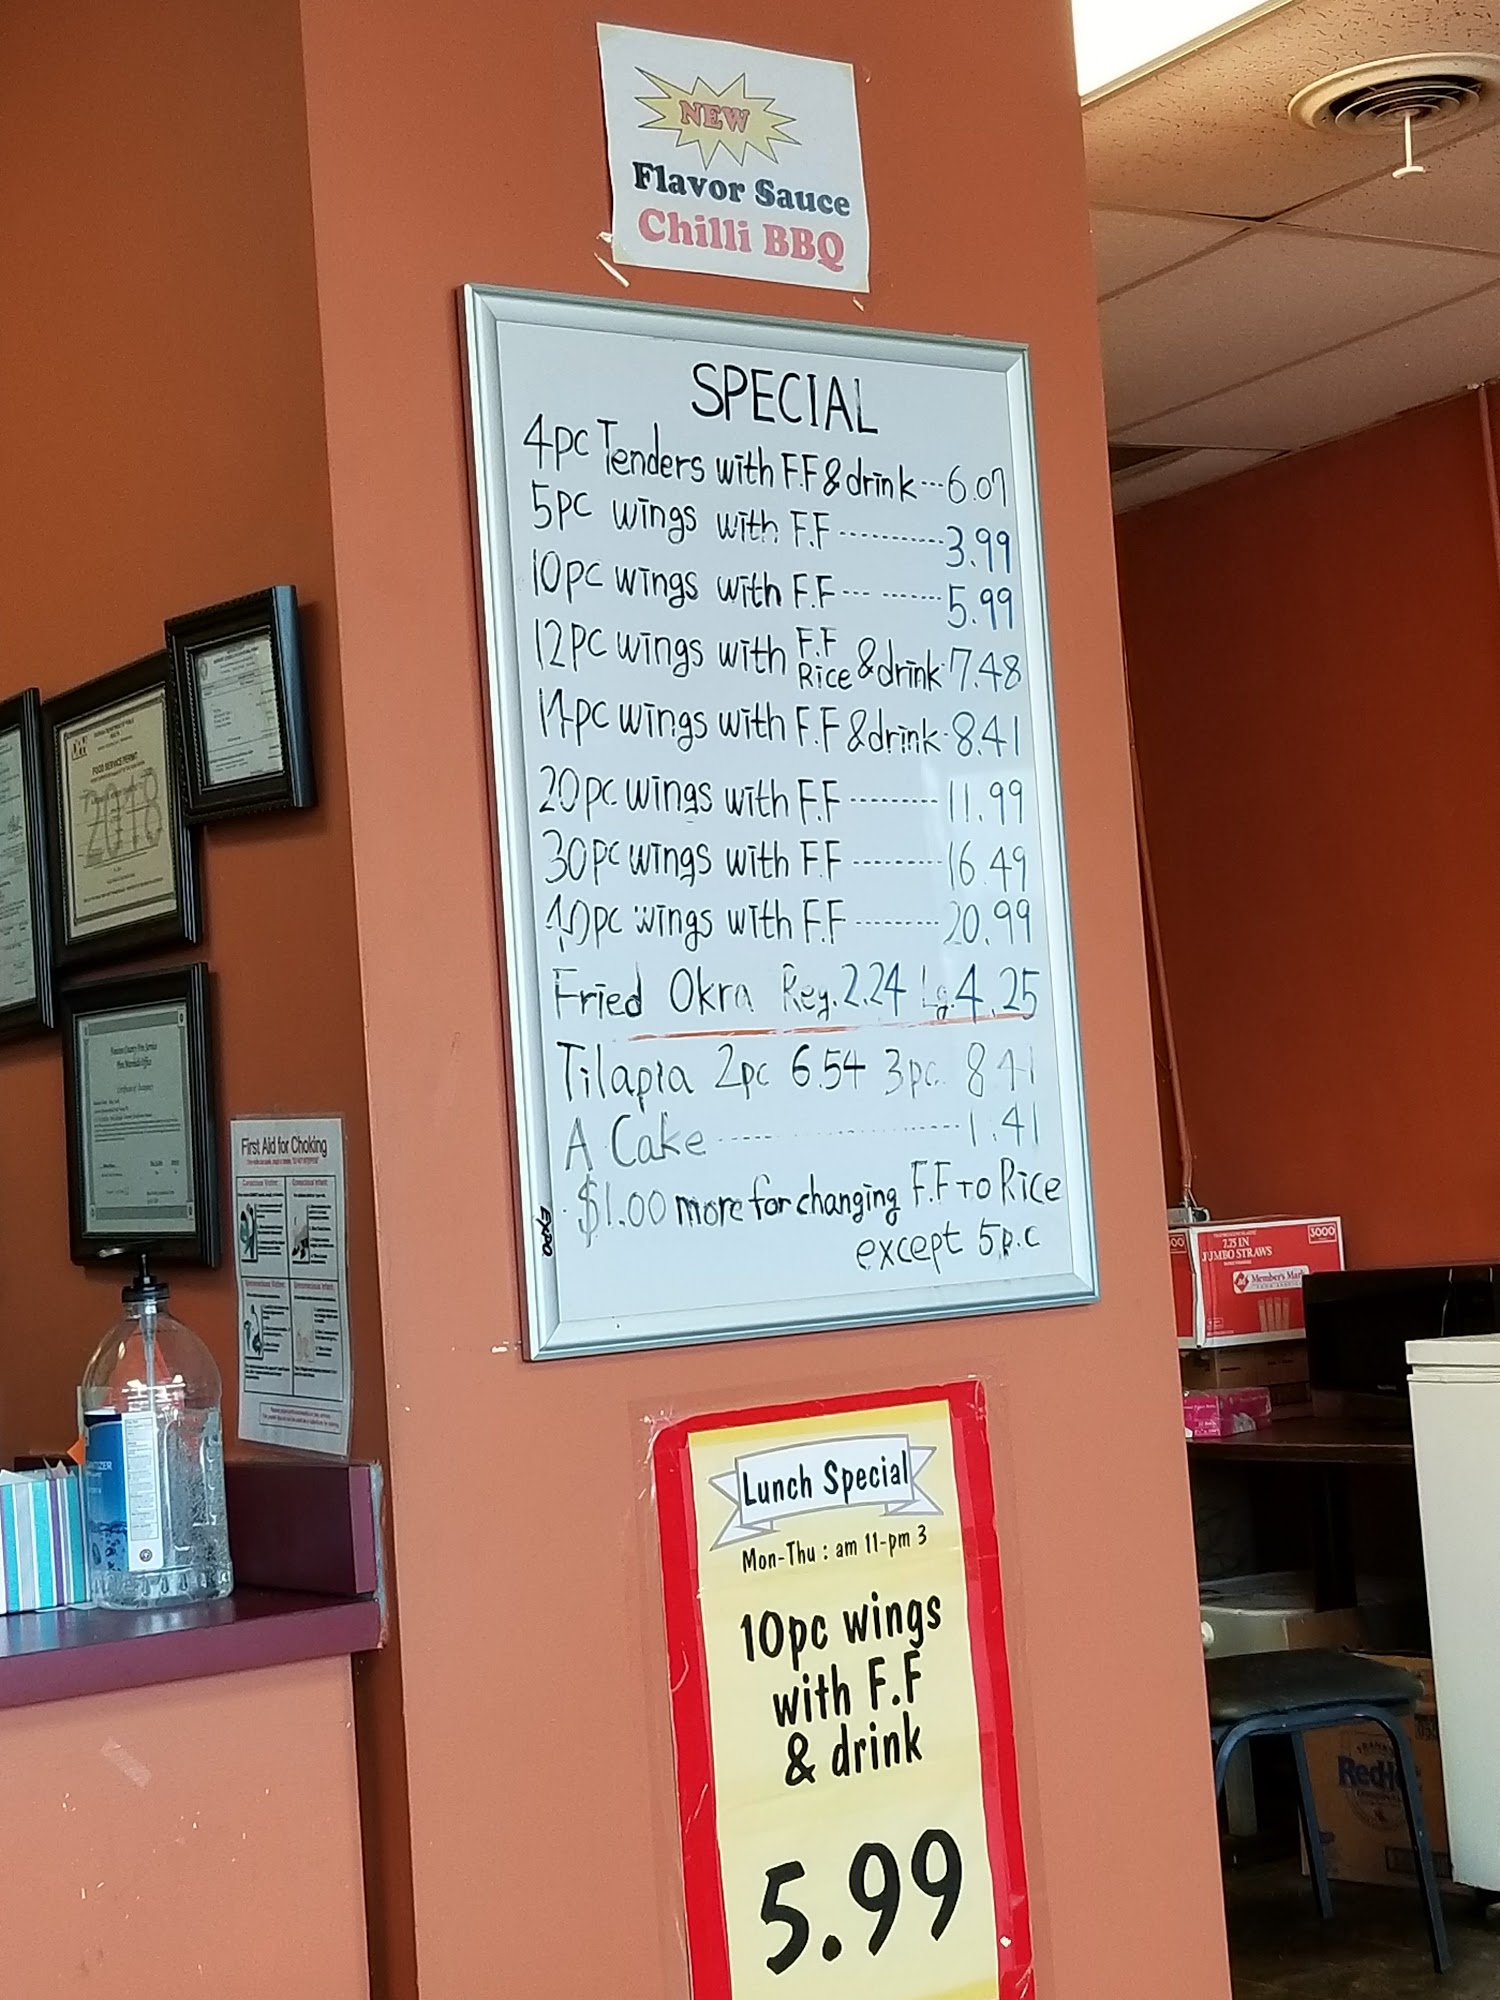 NEW
Flavor Sauce
Chilli BBQ
SPECIAL
4pc Tenders with F.F & drink --- 6.07
5pc wings with F.F ----------- 3.99
10pc wings with F.F --- ------- 5.99
12pc wings with F.F Rice & drink 7.48
14pc wings with F.F & drink - 8.41
20pc wings with F.F --------- 11.99
30pc wings with F.F --------- 16.49
40pc wings with F.F -------- 20.99
Fried Okra Reg. 2.24 Lg. 4.25
Tilapia 2pc 6.54 3pc. 8.41
A Cake ------------------- 1.41
$1.00 more for changing F.F TO Rice
except 5p.c
EXPO
Lunch Special
Mon-Thu : am 11-pm 3
10pc wings
with F.F
& drink
5.99
FOOD SERVICE PERMIT
2018
First Aid for Choking
3000
7.25 IN
JUMBO STRAWS
Member's Mark